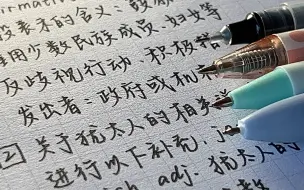 irmati
表示的含义：鼓励
雇用少数民族成员、妇女等
反歧视行动；积极措
发出者：政府或机
② 关于犹太人的相关
进行以下补充：J
ish adj. 犹太人的